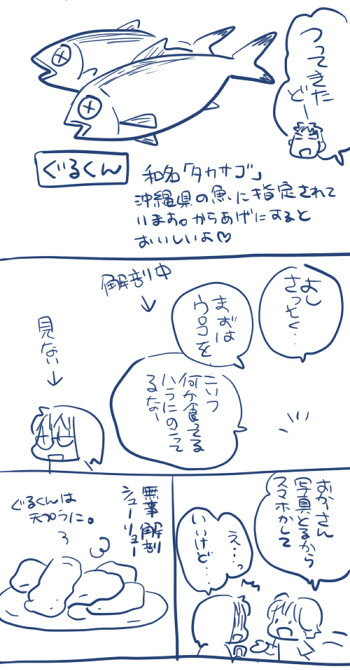 つってきた
どー
ぐるくん
和名「タカサゴ」
沖縄県の魚に指定されて
います。からあげにすると
おいしいよ♡
よし
さっそく…
まずは
ウロコを
解剖中
こいつ
何か食ってる
ハラにのこって
るな…
見ない
おかーさん
写真とるから
スマホかして
え…っ
いいけど…
無事解剖
シューリョー
ぐるくんは
天プラに。